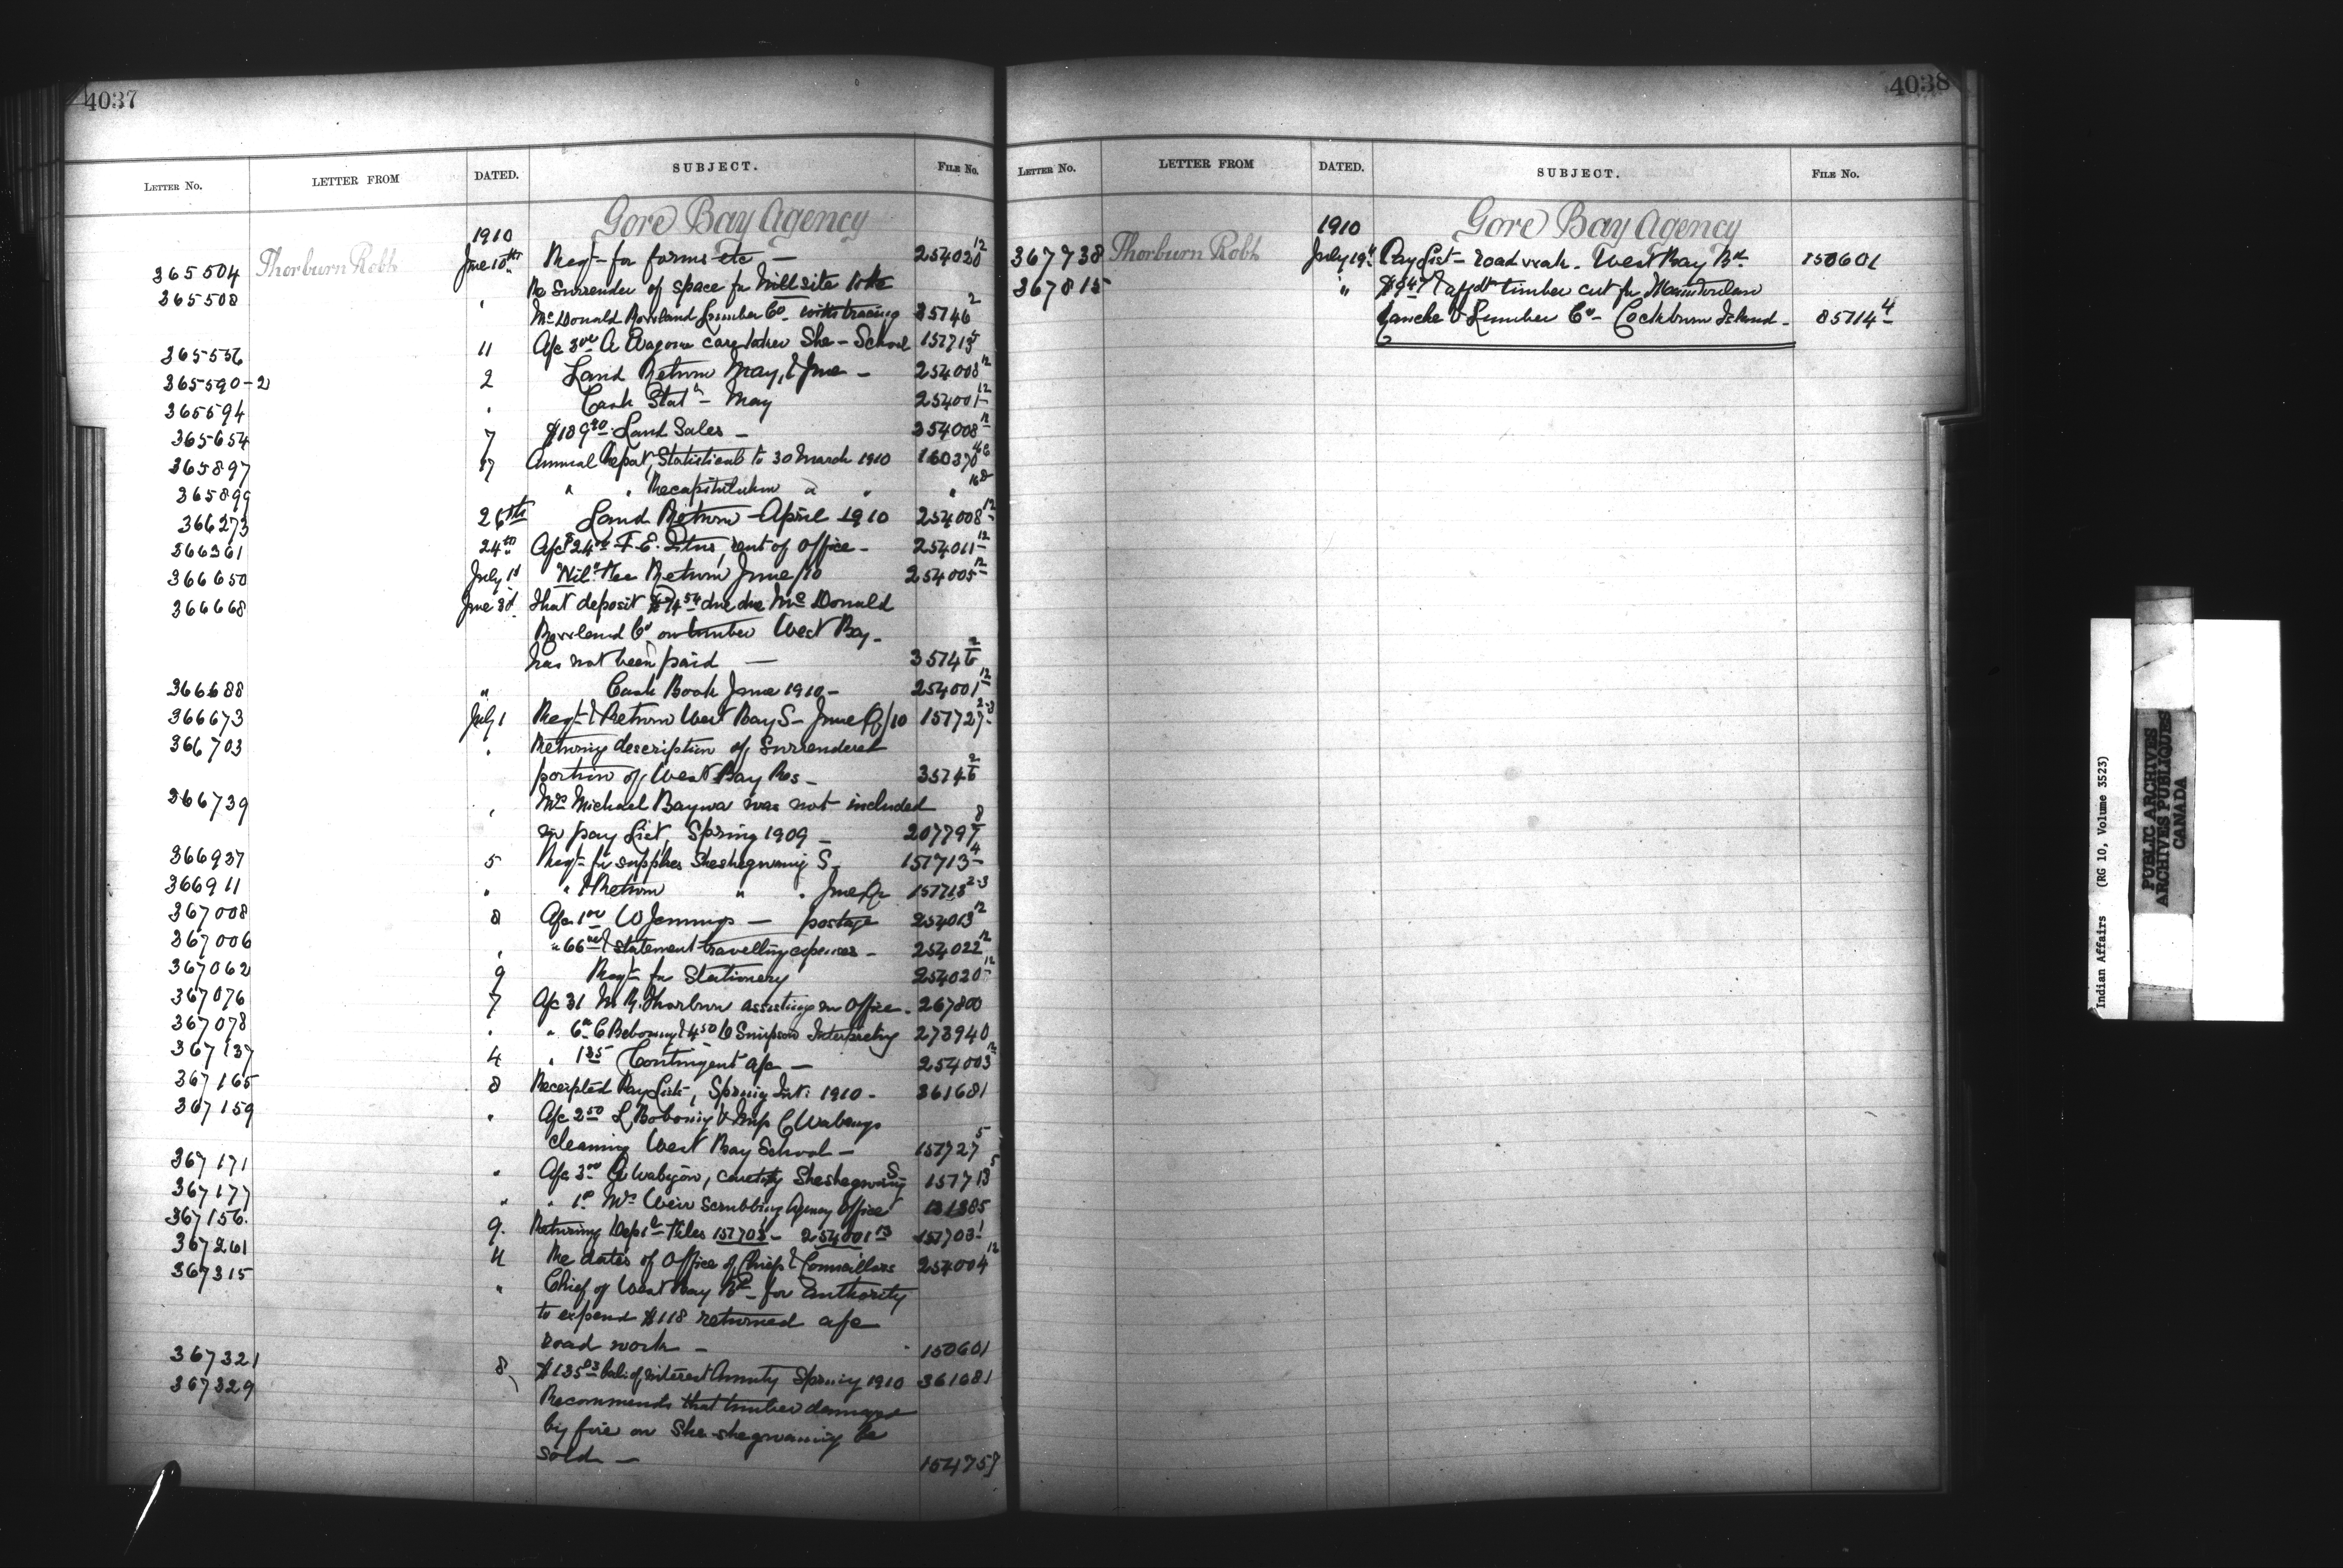 4037
LETTER No. LETTER FROM DATED. SUBJECT. FILE No.
Gore Bay Agency
1910
365504 Thorburn Robt June 10th Reqt for forms etc — 254020 12
365508 " Re Surrender of space for Millsite to the
McDonald Rowland Lumber Co. with tracing 35746 2
365556 11 A/c 3.00 A caretaker She - School 157713 5
365590-2 2 Land Return May, & June - 254008 12
365594 " Cash Stat - May 254001 12
365654 7 $189 Land Sales - 254008 12
365897 17 Annual Report, Statistical to 30 March 1910 160370
365899 " " Recapitulation " " "
366273 26th Land Return April 1910 254008 12
366361 24th A/c $24.00 F. E. rent of Office - 254011 12
366650 July 1st "Nil" Return June/10 254005 12
366668 June 30 That deposit due McDonald
Rowland Co on timber West Bay -
has not been paid — 35746 2
366688 " Cash Book June 1910 - 254001 12
366673 July 1 Reqt & Return West Bay S - June Qr/10 157727 2-3
366703 " Returning description of Surrendered
portion of West Bay Res - 35746 2
366739 " Mrs Michael Baywa was not included
in pay List, Spring 1909 - 207797 8
366937 5 Reqt for supplies Sheshegwaning S - 157713 4
366911 " " & Return " " June Qr 157713 2-3
367008 8 A/c 1.00 W Jennings — postage 254013 12
367006 " " 66 & statement travelling expenses - 254022 12
367062 9 Reqt for Stationery 254020 12
367076 7 A/c 31 M. R. Thorburn assisting in Office - 267800
367078 " " 6 C Bebonang & 4.50 Simpson Interpreting 273940
367137 4 " 1.35 Contingent a/c — 254003 12
367165 8 Receipted Pay Lists, Spring Int: 1910 - 361681
367159 " A/c 2.50 L & C
cleaning West Bay School — 157727 5
367171 " A/c 3.00 A Wabegon, caretkg Sheshegwaning S 157713 5
367177 " " 1.00 Mrs Weir Scrubbing Agency Office 131385
367156. 9. Returning Deptl Files 157703 1 - 254001 13 157703 1
367261 11 Re dates of Office of Chiefs & Councillors 254004 12
367315 " Chief of West Bay Bd - for authority
to expend $118 returned a/c
road work - 150601
367321 8 $135 bal: of interest Annuity Spring 1910 361681
367329 " Recommends that timber damaged
by fire on She-shegwaning be
sold — 154759
4038
LETTER No. LETTER FROM DATED. SUBJECT. FILE No.
Gore Bay Agency
1910
367738 Thorburn Robt July 19th Pay List - road work - West Bay Bd 150601
367815 " & affdt timber cut for
Ranche & Lumber Co - Cockburn Island - 85714 4
Indian Affairs (RG 10, Volume 3523)
PUBLIC ARCHIVES
ARCHIVES PUBLIQUES
CANADA